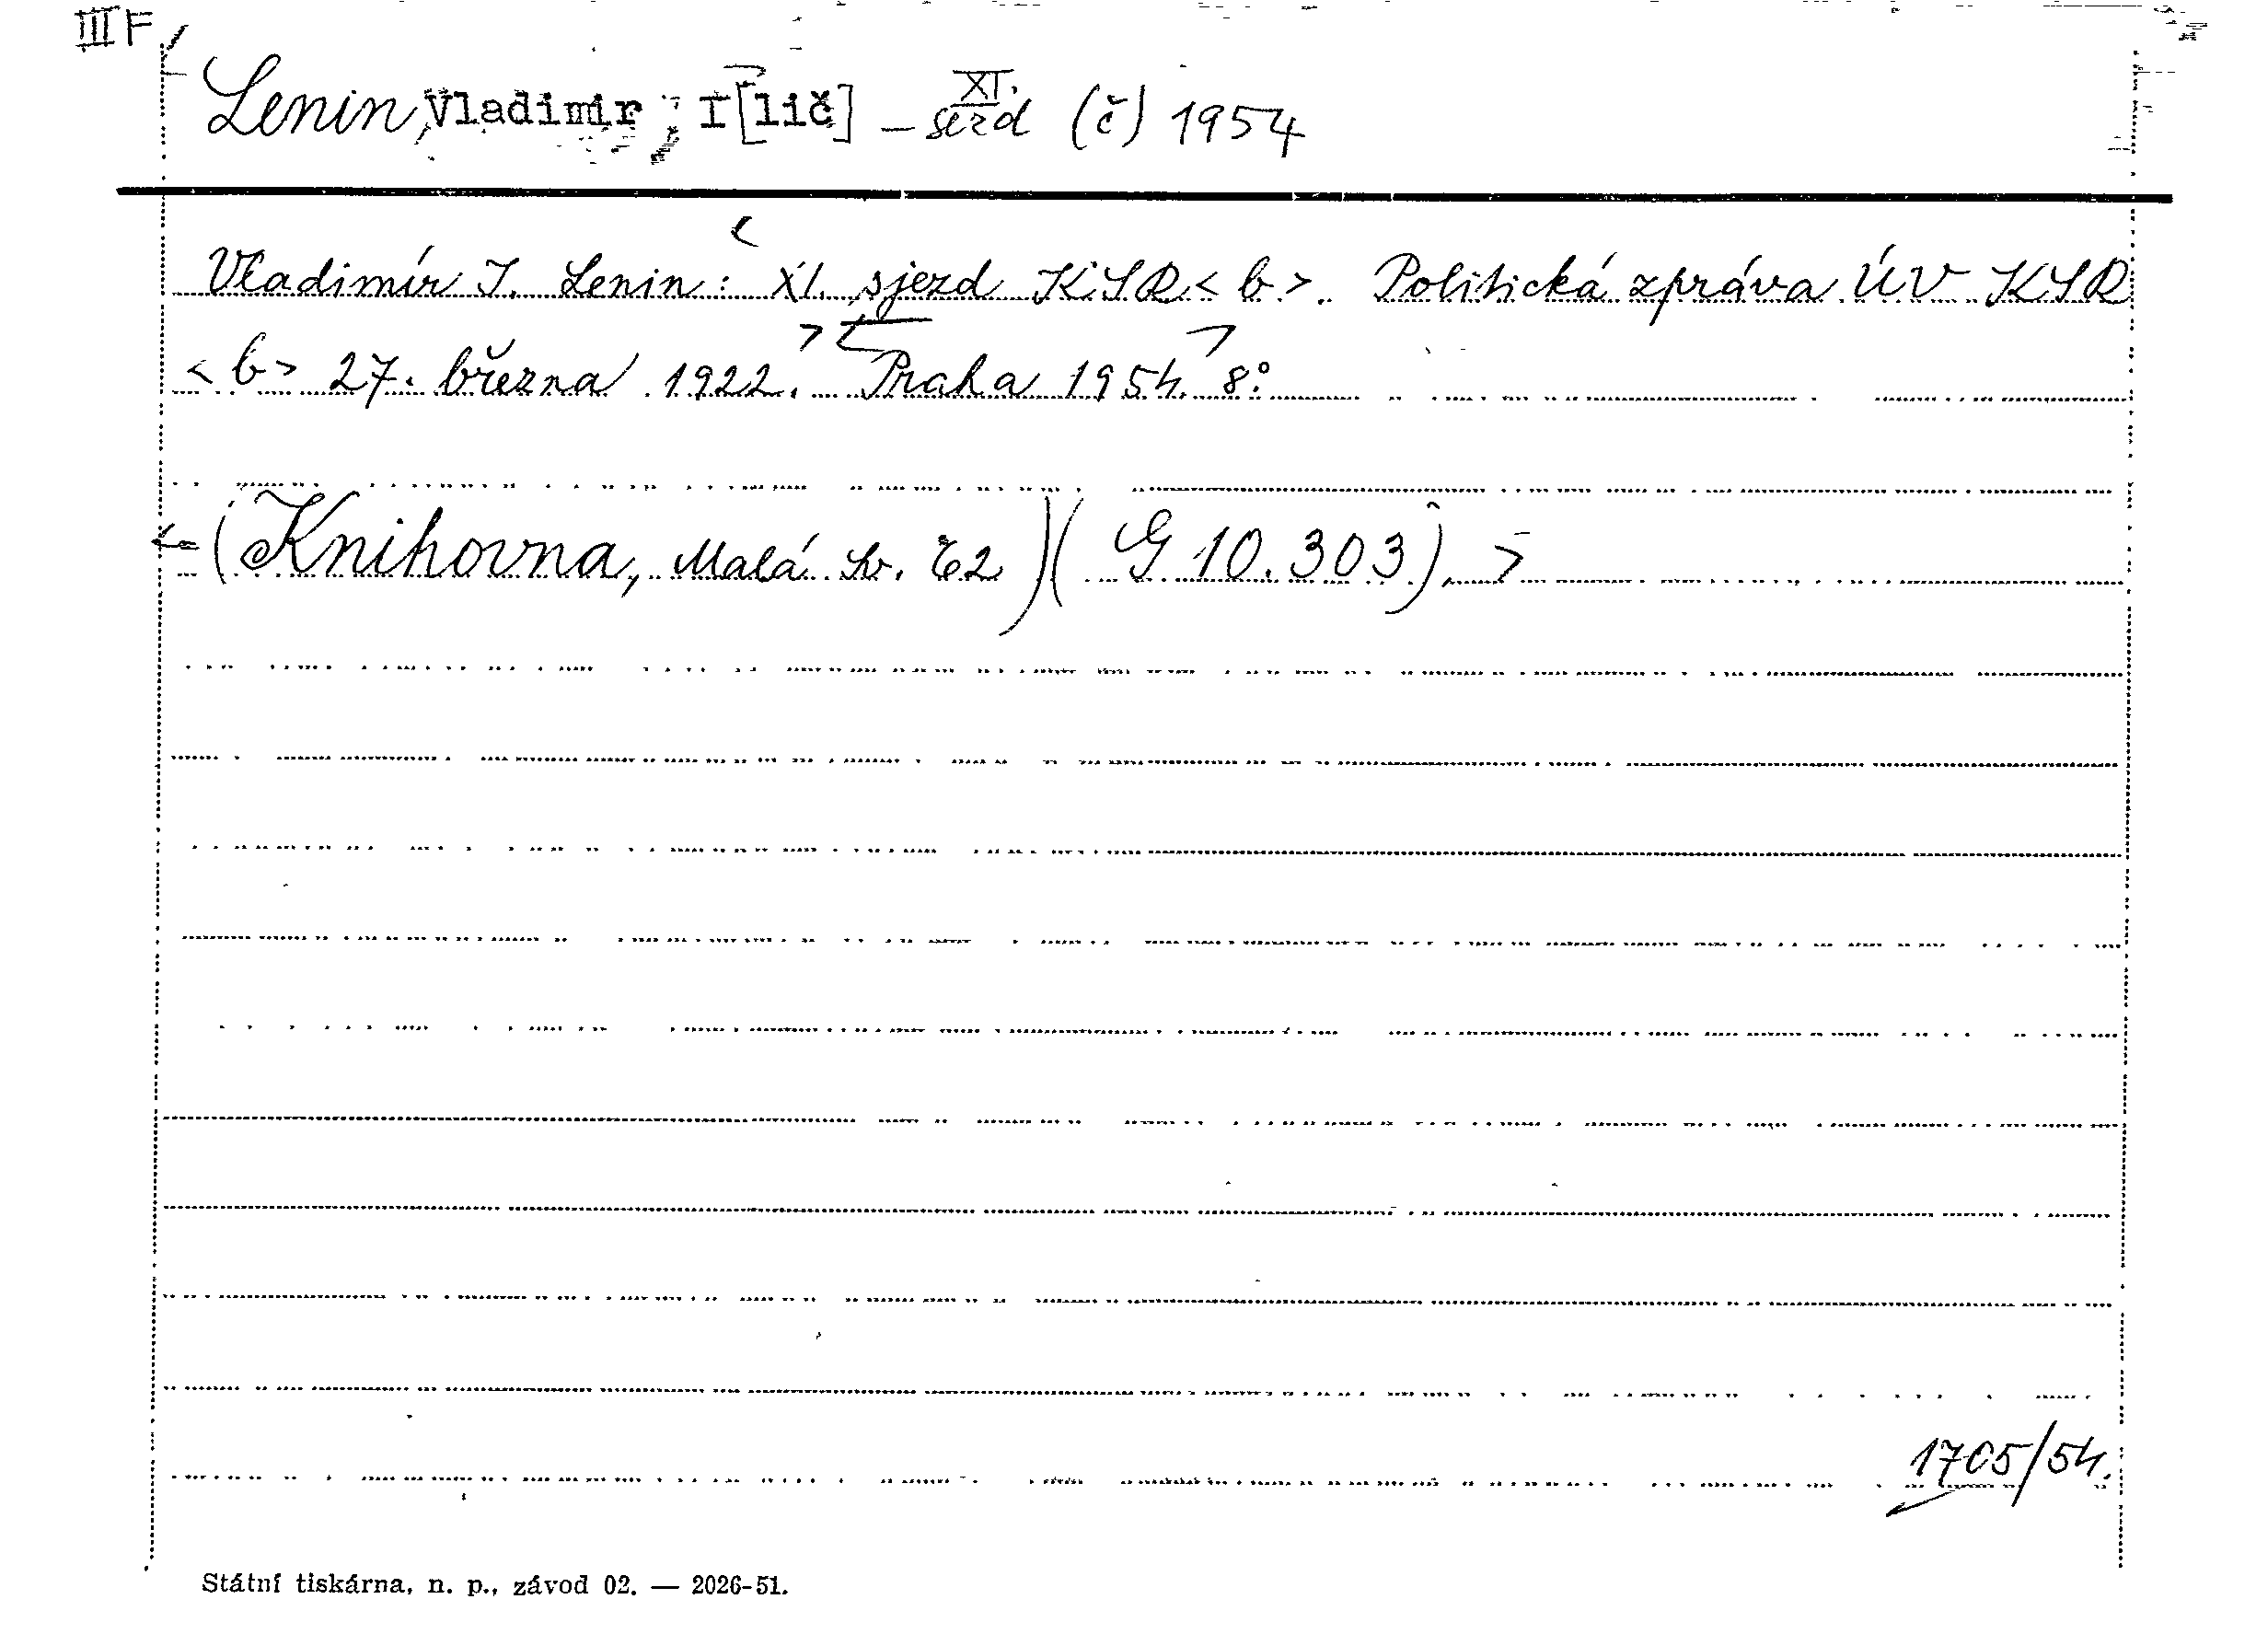 III F
Lenin, Vladimir I[lič] – XI. sězd (č) 1954
Vladimír I. Lenin : XI. sjezd KSR < b >. Politická zpráva ÚV KSR
< b > 27. března 1922. Praha 1954. 8°.
(Knihovna, Malá sv. č 2) (G 10.303).
1705/54.
Státní tiskárna, n. p., závod 02. — 2026-51.